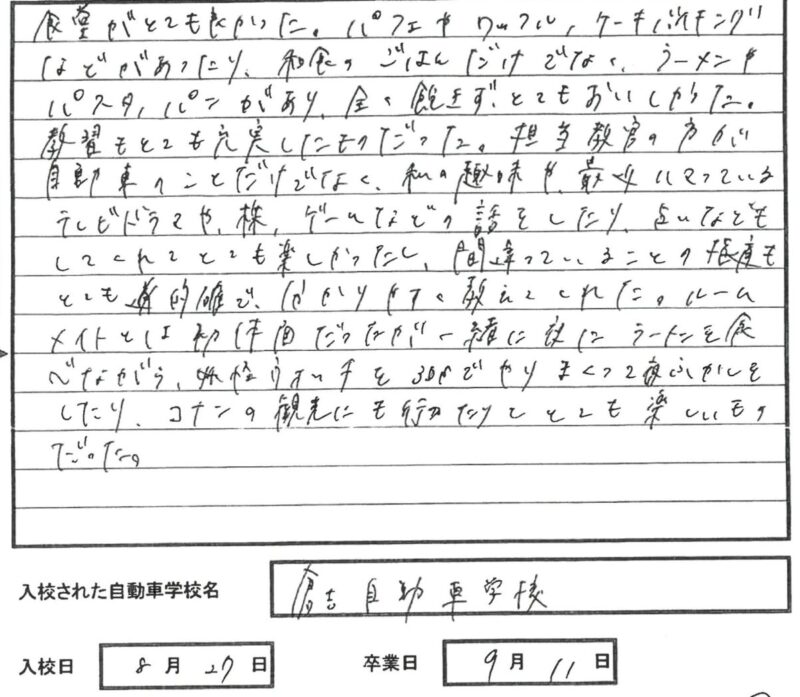 食堂がとても良かった。パフェやワッフル、ケーキバイキング
などがあったり、和食のごはんだけでなく、ラーメンや
パスタ、パンがあり、全く飽きず、とてもおいしかった。
教習もとても充実したものだった。担当教官の方が
自動車のことだけでなく、私の趣味や、最近ハマっている
テレビドラマや、株、ゲームなどの話をしたり、占いなども
してくれてとても楽しかったし、間違っていることの指摘も
とても的確で、分かりやすく教えてくれた。ルーム
メイトとは初体面だったが一緒に夜にラーメンを食
べながら、妖怪ウォッチを3DSでやりまくって夜ふかしを
したり、コナンの観光にも行ったりしとても楽しいもの
だった。
入校された自動車学校名 倉吉自動車学校
入校日 8月27日 卒業日 9月11日